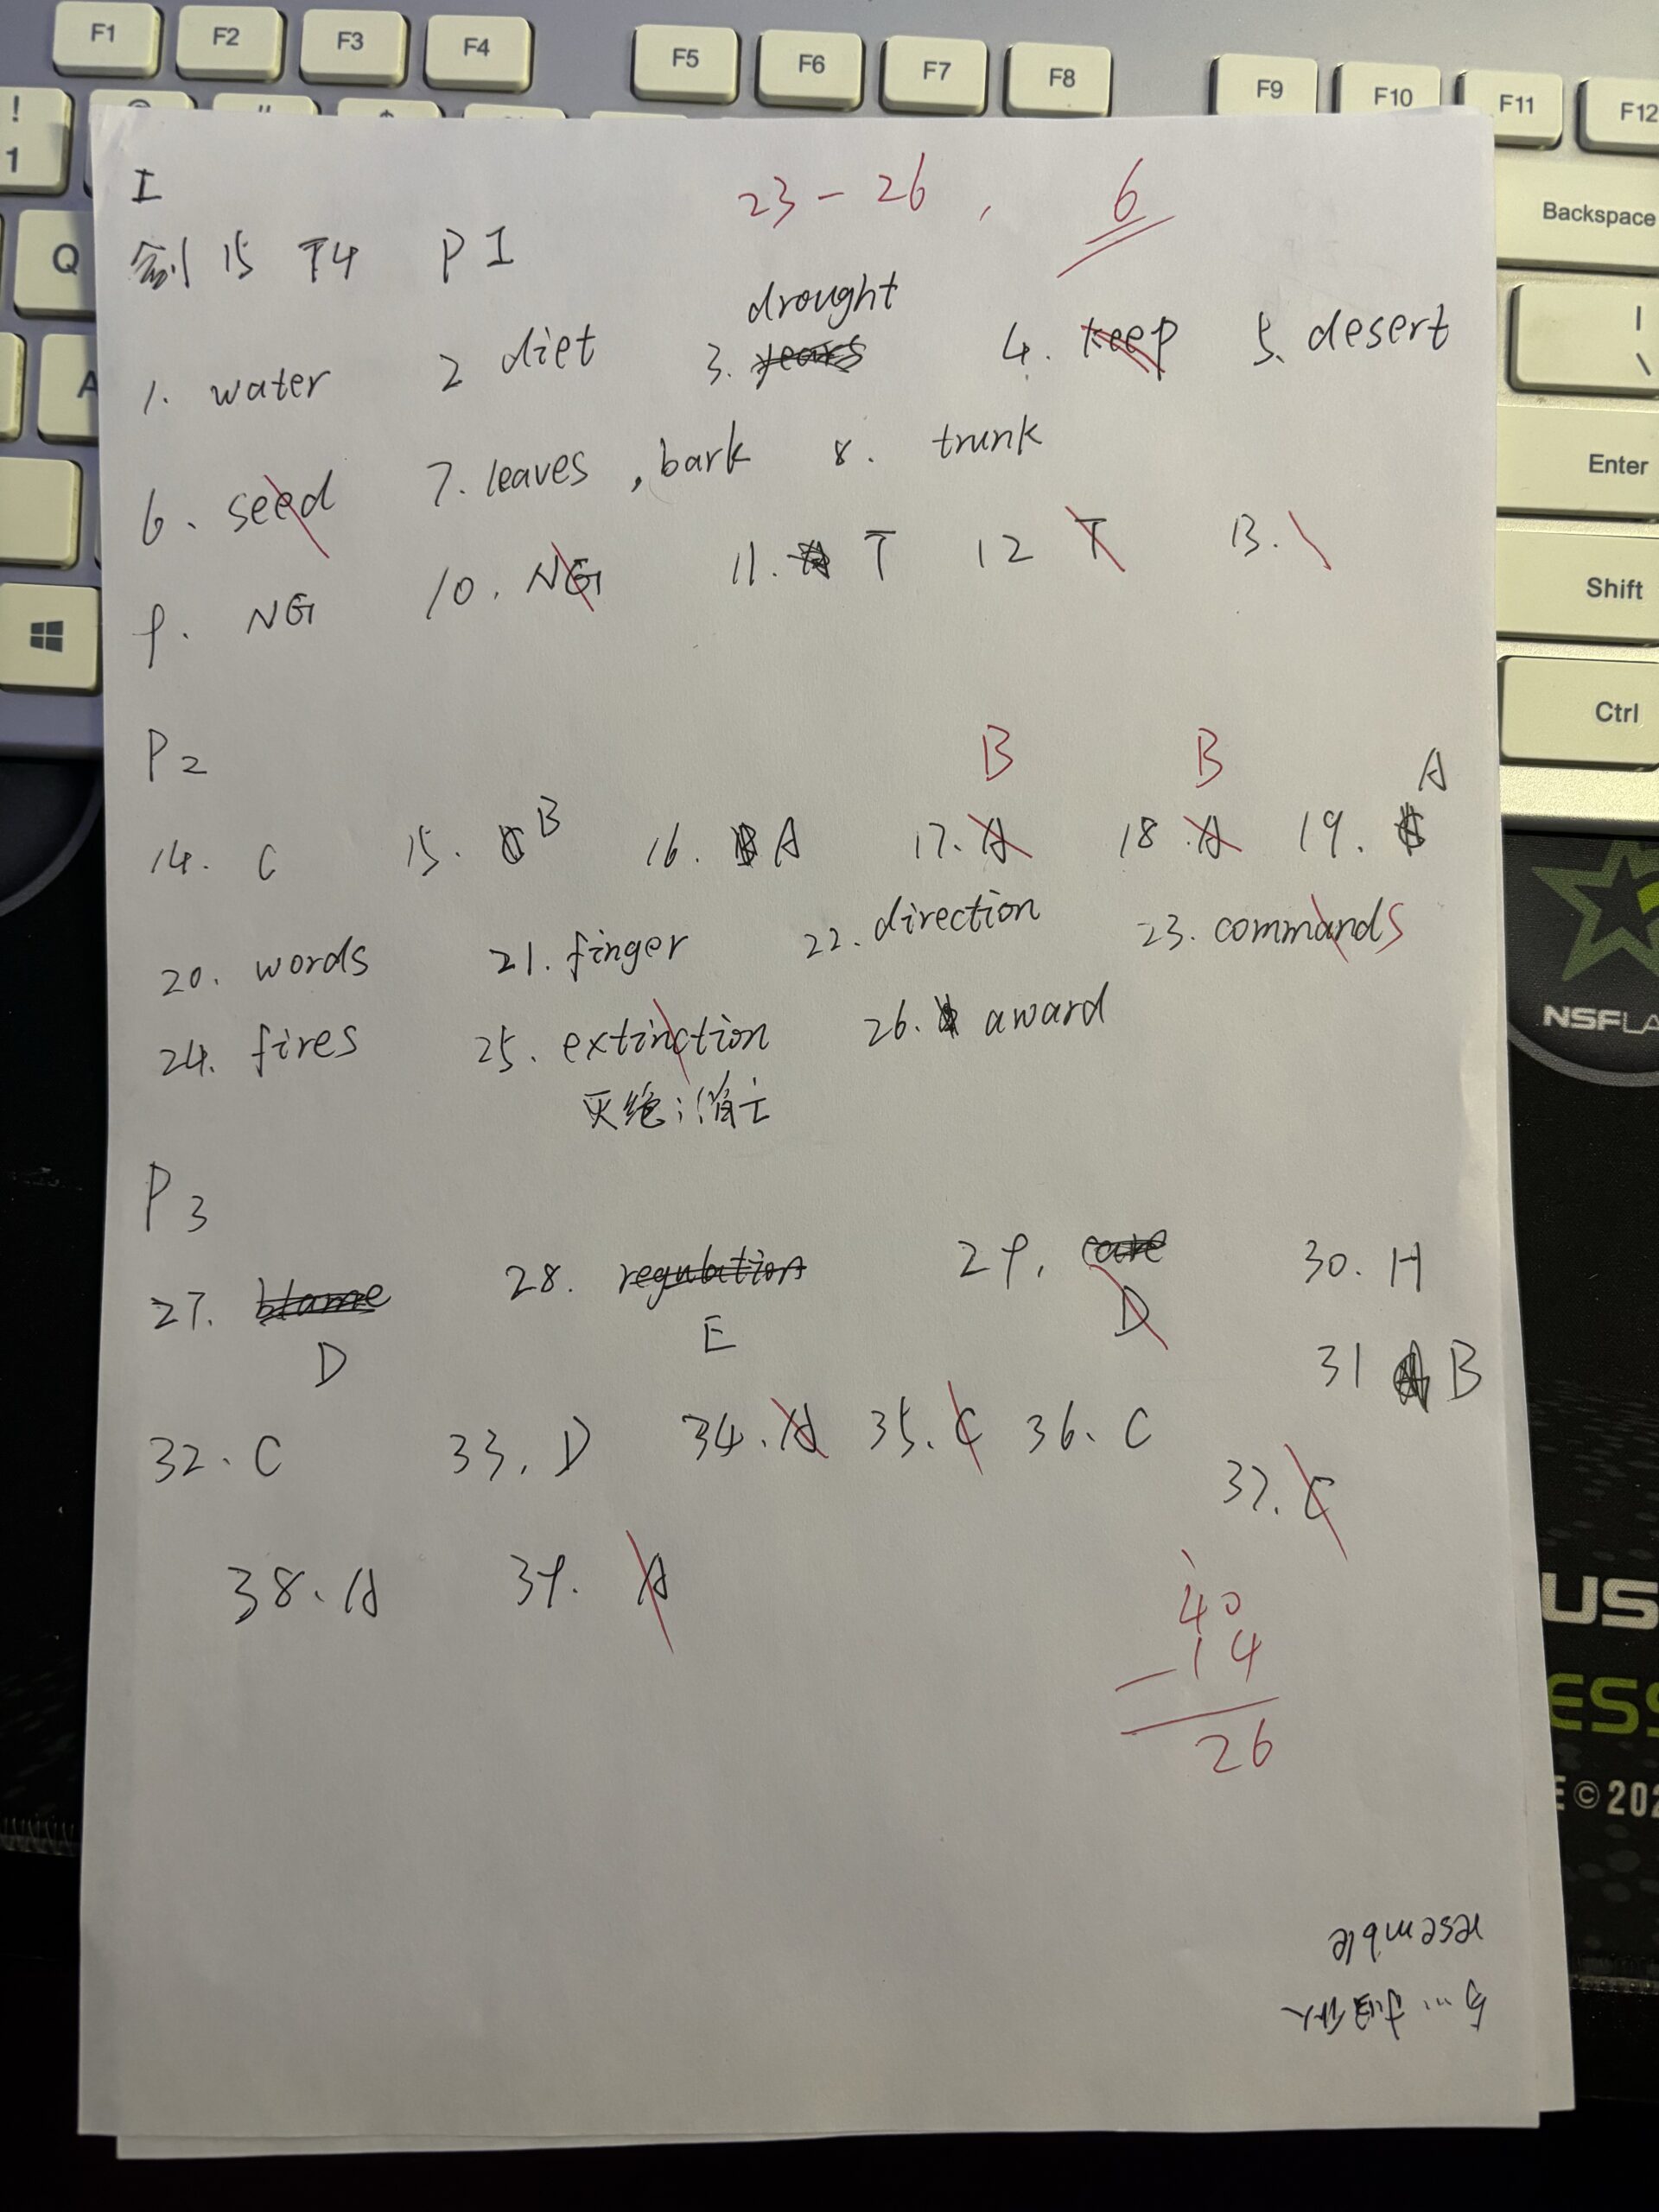 F1 F2 F3 F4 F5 F6 F7 F8 F9 F10 F11 F12
!
1
Backspace
Q
|
\
A
Enter
Shift
Ctrl
I
23 - 26 , 6
剑 15 T4 P I
drought
1. water 2 diet 3. years 4. keep 5. desert
6. seed 7. leaves , bark 8. trunk
9. NG 10. NG 11. T 12 T 13.
P2
B B A
14. C 15. B 16. A 17. A 18. A 19.
20. words 21. finger 22. direction 23. commands
24. fires 25. extinction 26. award
灭绝;消亡
P3
27. blame 28. regulation 29. care 30. H
D E D
31 B
32. C 33. D 34. A 35. C 36. C
37. C
38. A 39. A
40
- 14
26
resemble
与…相似
NSFLA
US
ESS
E © 202